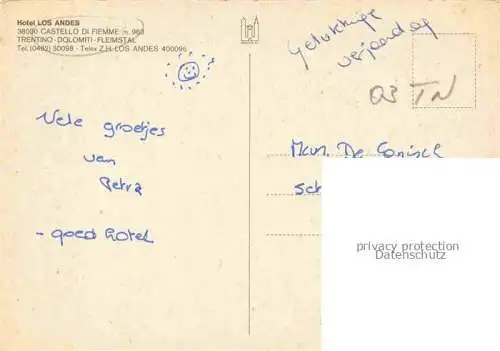 Hotel LOS ANDES
38030 CASTELLO DI FIEMME m. 963
TRENTINO - DOLOMITI - FLEIMSTAL
Tel. (0462) 30098 - Telex Z.H. LOS ANDES 400096
Gelukkige
verjaardag
03 TN
Vele groetjes
van
Petra
- goed hotel
De
privacy protection
Datenschutz